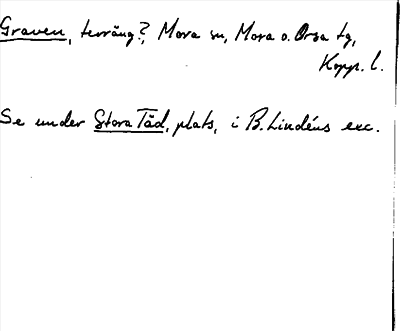 Graven, terräng?, Mora sn, Mora o. Orsa tg,
Kopp. l.
Se under Stora Täd, plats, i B. Lindéns exc.